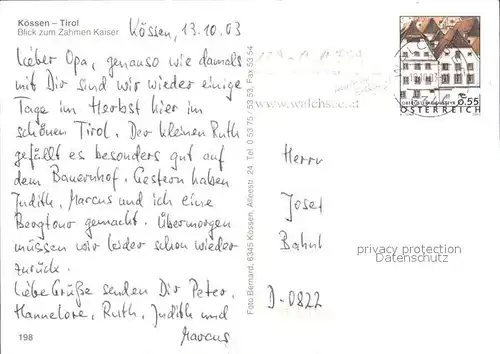 Kössen – Tirol
Blick zum Zahmen Kaiser
Kössen, 13.10.03
Lieber Opa, genauso wie damals
mit Dir sind wir wieder einige
Tage im Herbst hier im
schönen Tirol. Der kleinen Ruth
gefällt es besonders gut auf
dem Bauernhof. Gestern haben
Judith, Marcus und ich eine
Bergtour gemacht. Übermorgen
müssen wir leider schon wieder
zurück.
Liebe Grüße senden Dir Peter,
Hannelore, Ruth, Judith und
Marcus
198
Foto Bernard, 6345 Kössen, Alleestr. 24, Tel. 0 53 75 / 53 53, Fax 53 54
www.walchsee.at
0.55
ÖSTERREICH
Herrn
Josef
D-0822
privacy protection
Datenschutz